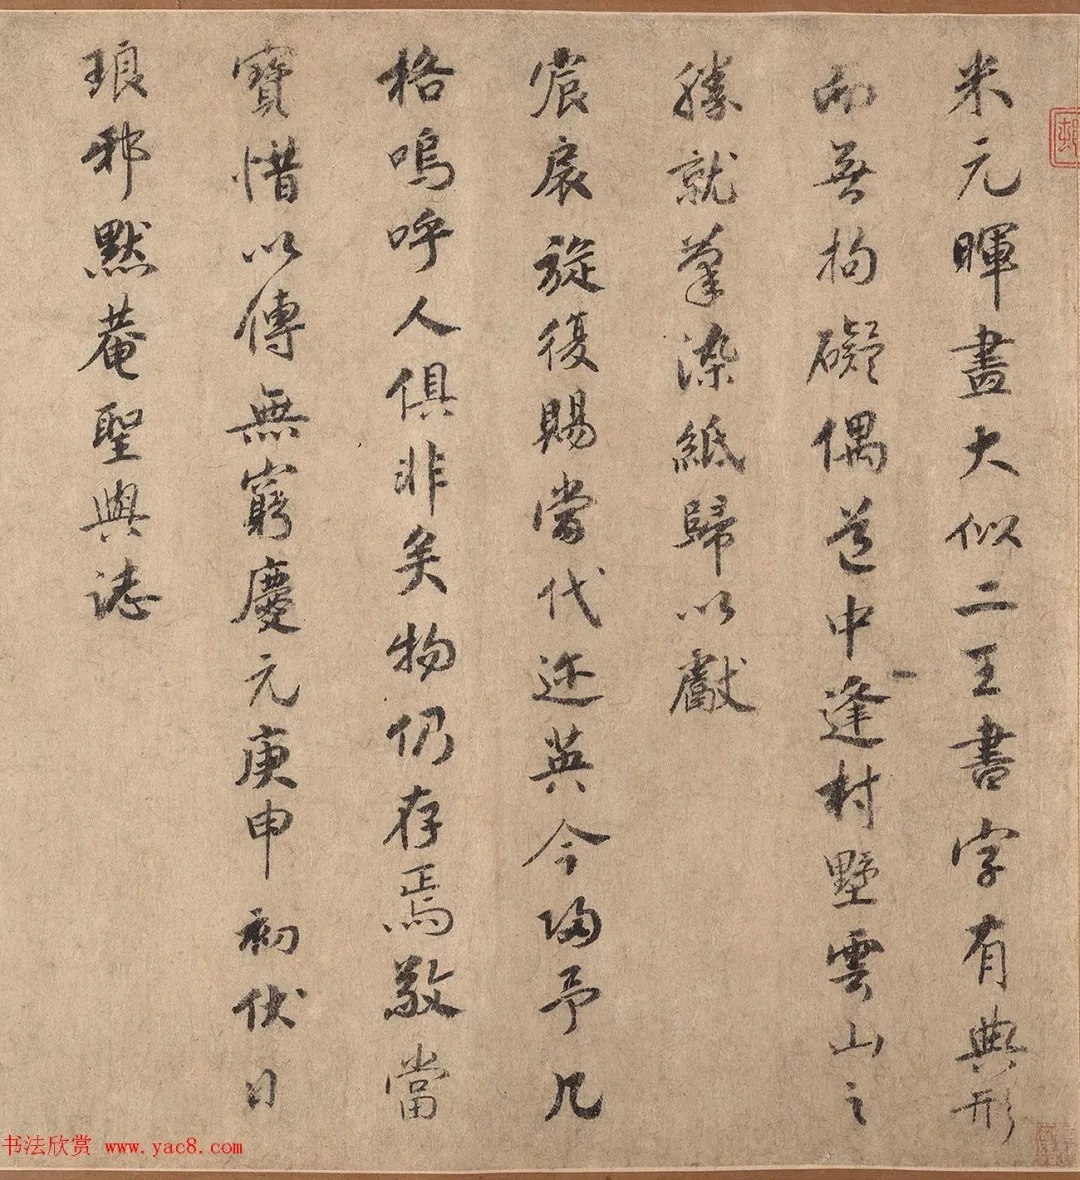 米元暉畫大似二王書字有典形
而無拘礙偶道中逢村墅雲山之
勝就筆染紙歸以獻
宸扆旋復賜當代迩英今歸予几
格嗚呼人俱非矣物仍存焉敬當
寶惜以傳無窮慶元庚申初伏日
琅邪默菴聖與誌
书法欣赏 www.yac8.com